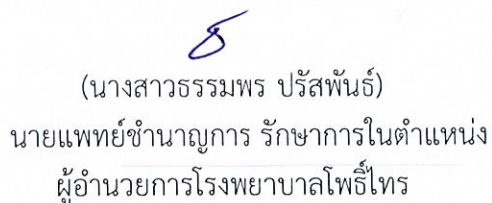 (นางสาวธรรมพร ปรัสพันธ์)
นายแพทย์ชำนาญการ รักษาการในตำแหน่ง
ผู้อำนวยการโรงพยาบาลโพธิ์ไทร